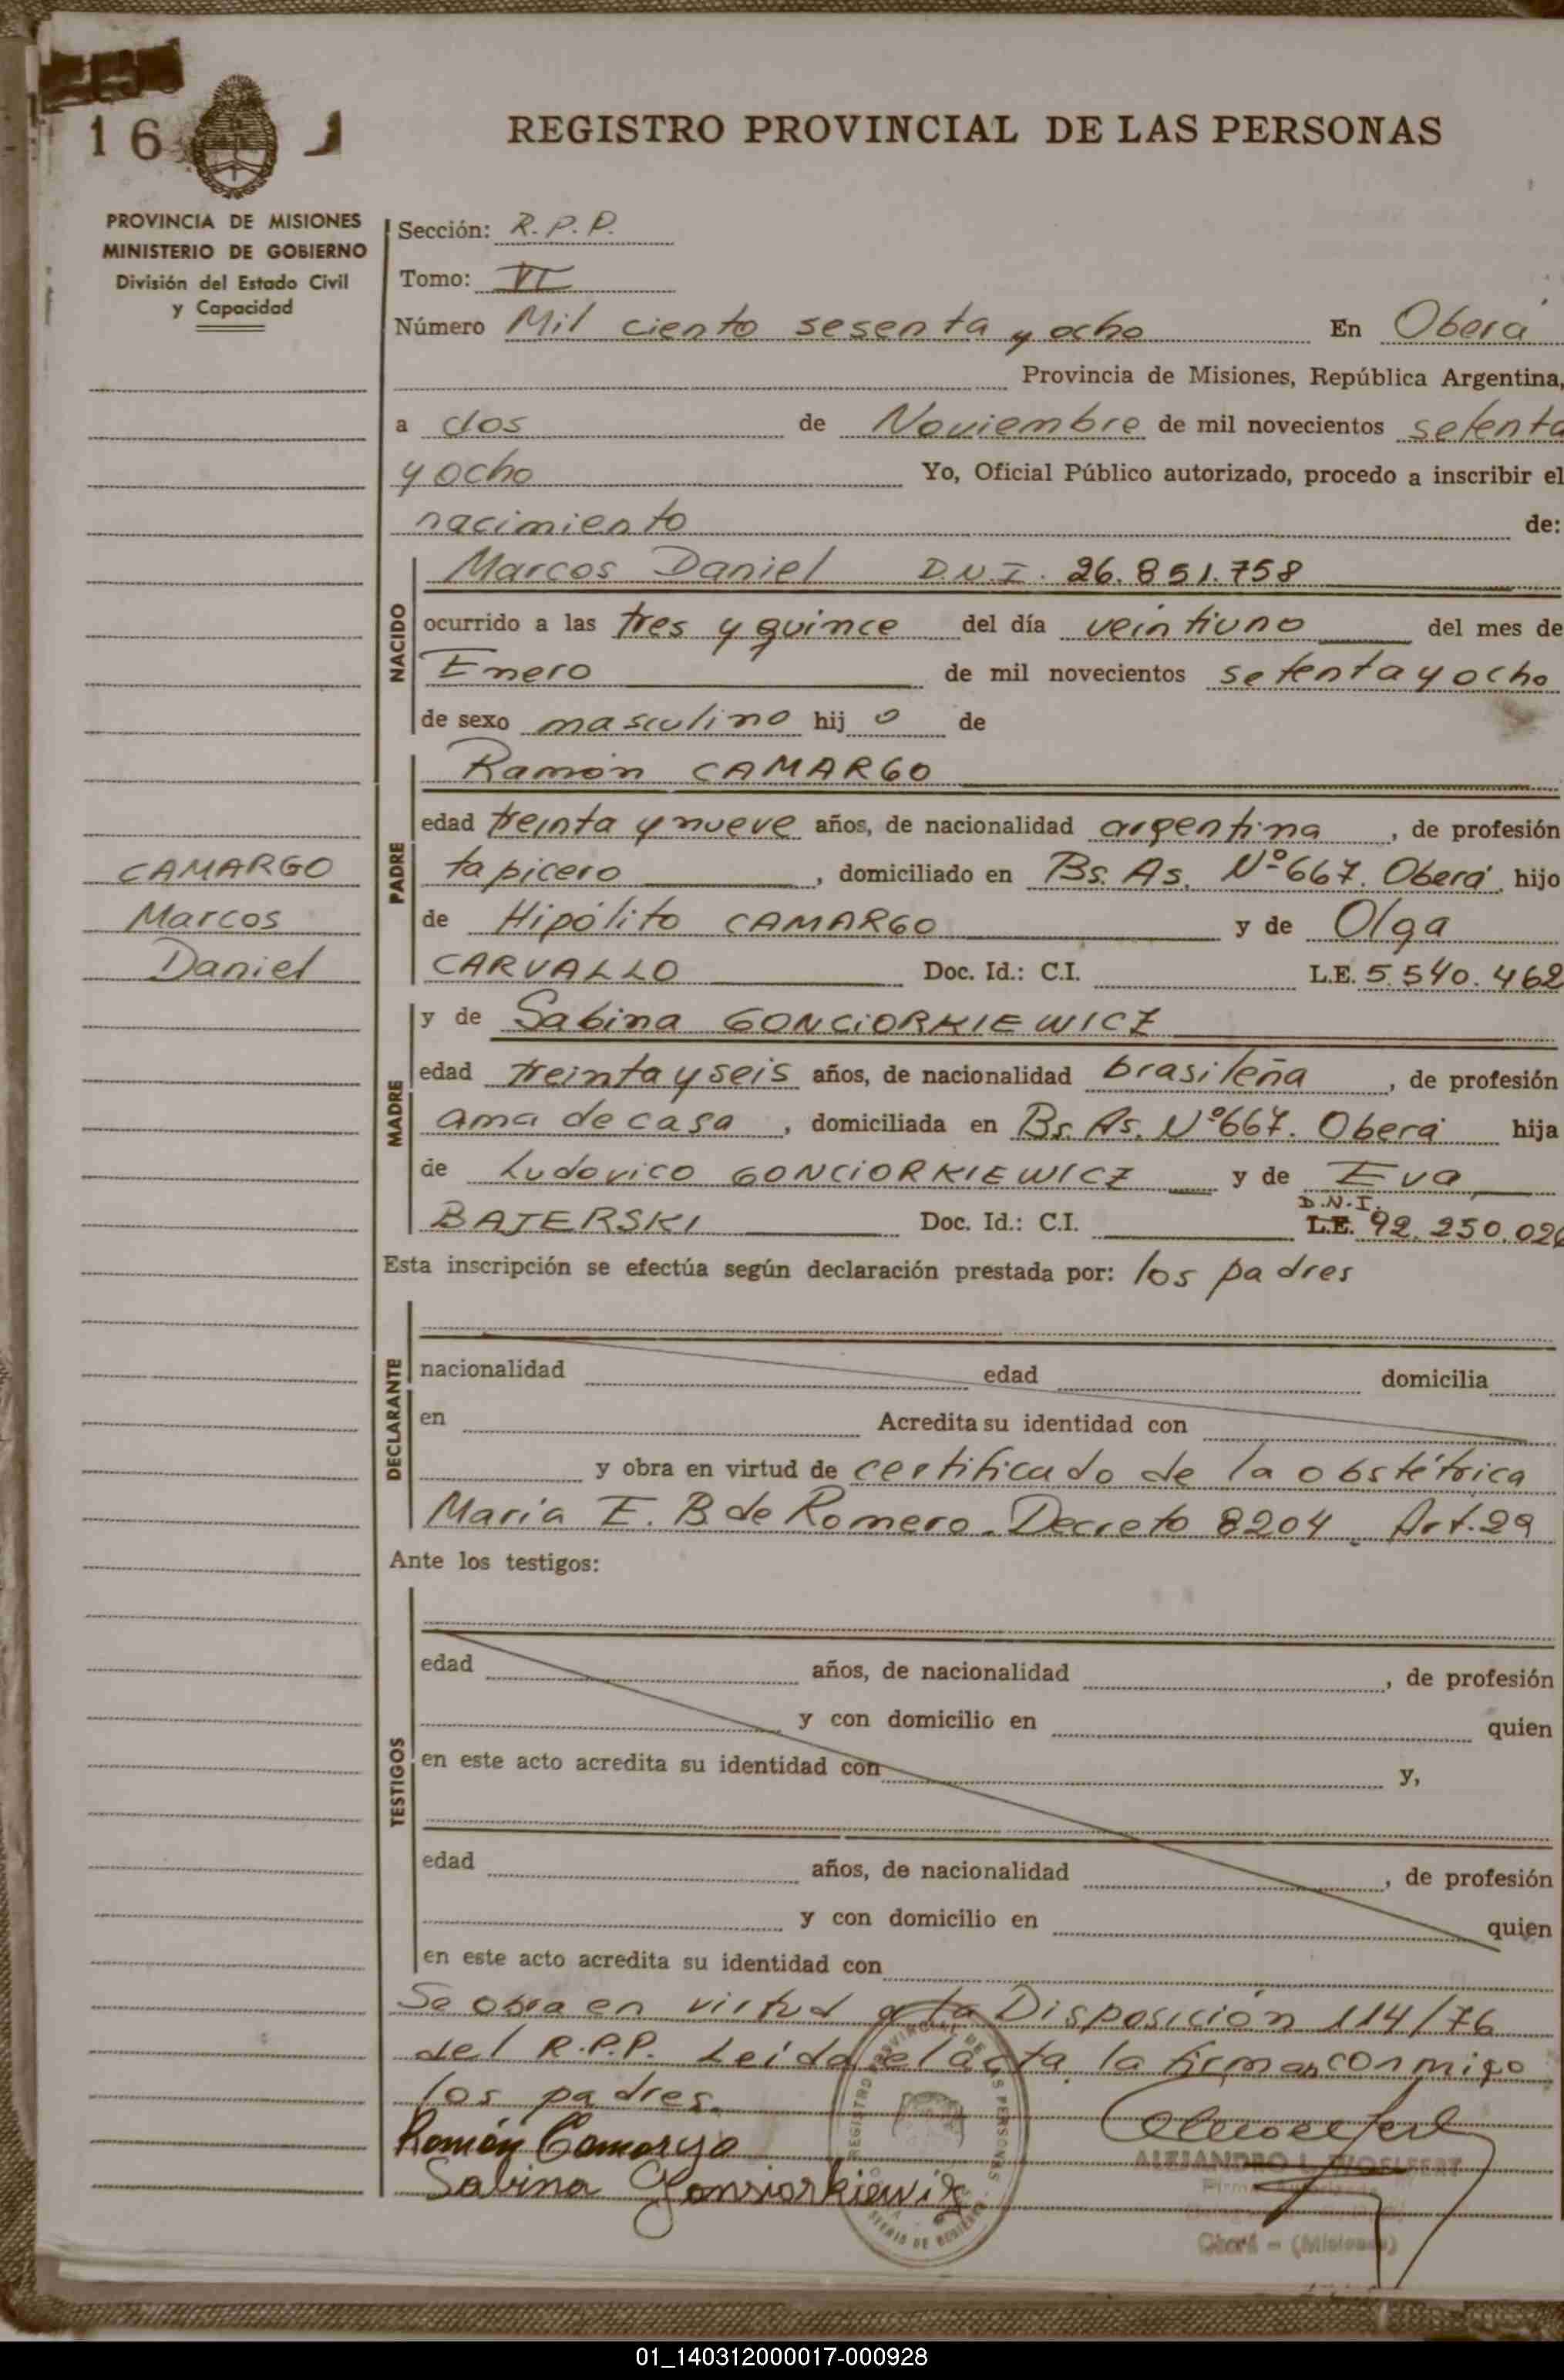 16
REGISTRO PROVINCIAL DE LAS PERSONAS
PROVINCIA DE MISIONES
MINISTERIO DE GOBIERNO
División del Estado Civil
y Capacidad
Sección: R.P.P.
Tomo: VI
Número Mil ciento sesenta y ocho En Oberá
Provincia de Misiones, República Argentina,
a dos de Noviembre de mil novecientos setenta
y ocho Yo, Oficial Público autorizado, procedo a inscribir el
nacimiento de:
NACIDO
Marcos Daniel D.N.I. 26.851.758
ocurrido a las tres y quince del día veintiuno del mes de
Enero de mil novecientos setenta y ocho
de sexo masculino hij o de
PADRE
Ramón CAMARGO
edad treinta y nueve años, de nacionalidad argentina, de profesión
tapicero, domiciliado en Bs. As. Nº 667. Oberá hijo
de Hipólito CAMARGO y de Olga
CARVALLO Doc. Id.: C.I. L.E. 5.540.462
CAMARGO
Marcos
Daniel
MADRE
y de Sabina GONCiORKIEWICZ
edad treinta y seis años, de nacionalidad brasileña, de profesión
ama de casa, domiciliada en Bs. As. Nº 667. Oberá hija
de Ludovico GONCiORKIEWICZ y de Eva
D.N.I.
BAJERSKI Doc. Id.: C.I. L.E. 92.250.026
Esta inscripción se efectúa según declaración prestada por: los padres
DECLARANTE
nacionalidad edad domicilia
en Acredita su identidad con
y obra en virtud de certificado de la obstétrica
María E. B de Romero. Decreto 8204 Art. 29
Ante los testigos:
TESTIGOS
edad años, de nacionalidad, de profesión
y con domicilio en quien
en este acto acredita su identidad con y,
edad años, de nacionalidad, de profesión
y con domicilio en quien
en este acto acredita su identidad con
Se obra en virtud a la Disposición 114/76
del R.P.P. Leída el acta la firman conmigo
los padres.
Ramón Camargo
Sabina Gonsiorkiewiz
ALEJANDRO L. WOELFERT
Oberá - (Misiones)
01_140312000017-000928